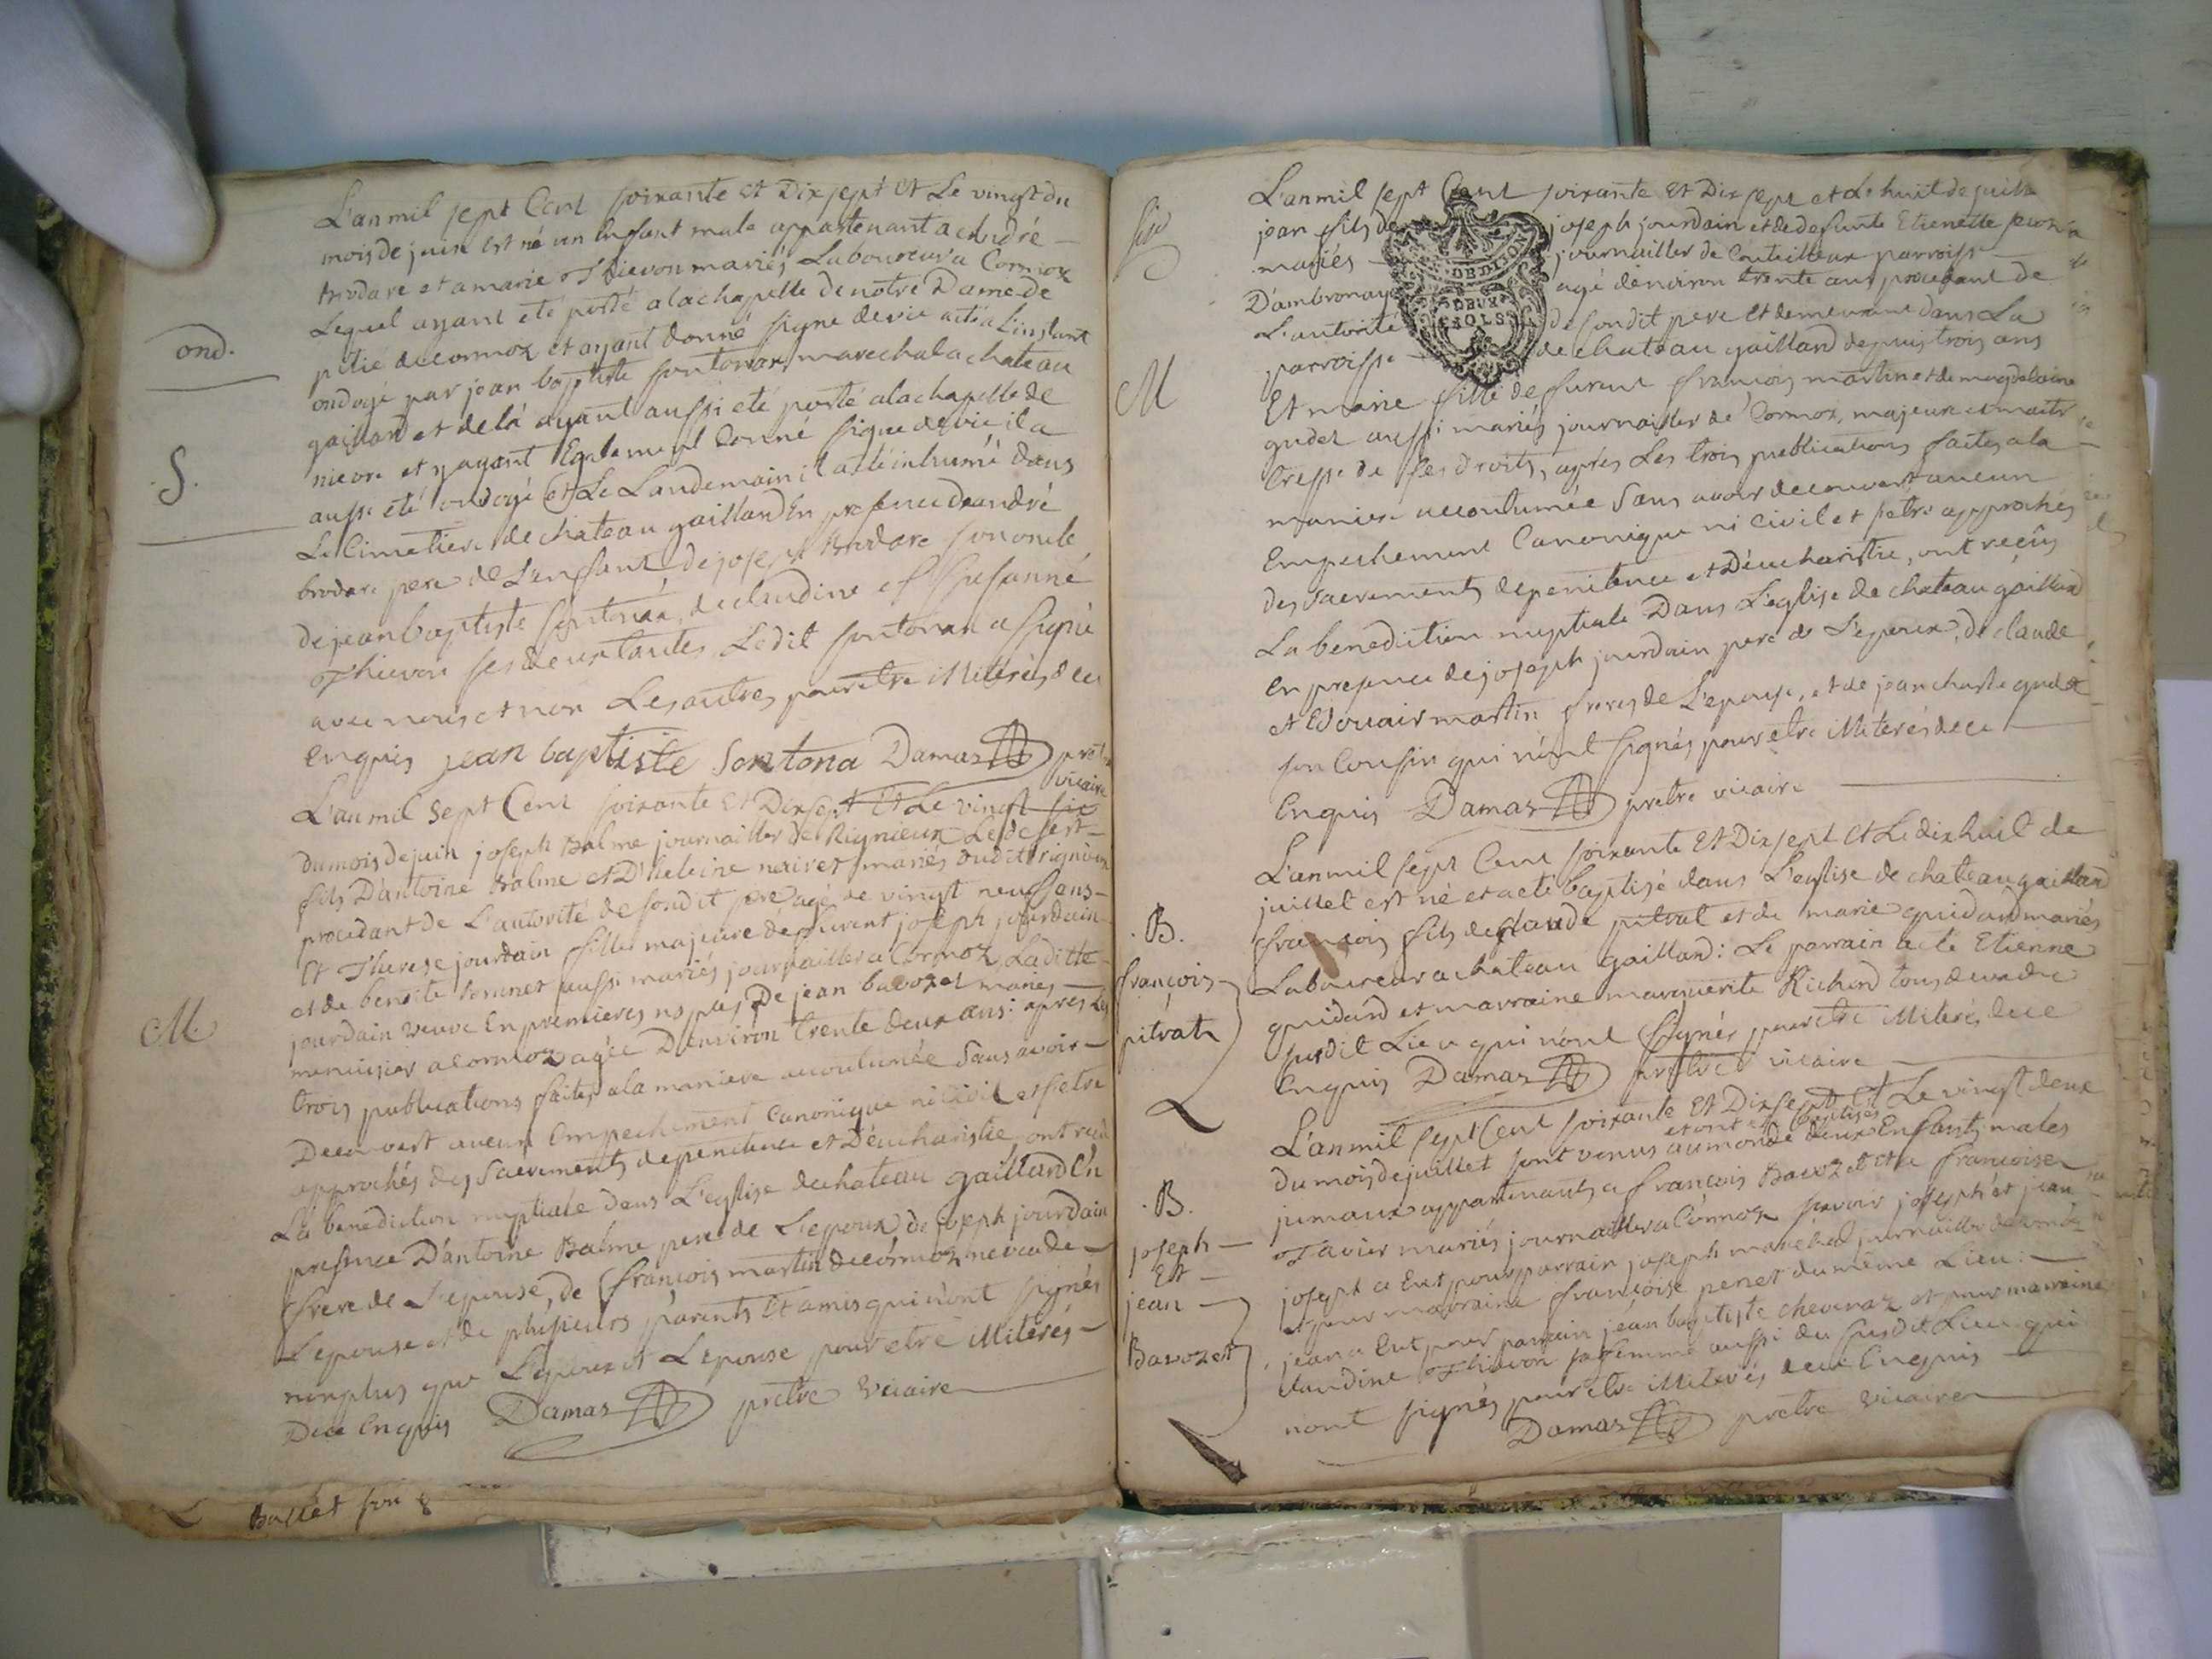 L'an mil sept Cent soixante et Dix sept et Le vingt du
mois de juin est né un Enfant male appartenant a andré
brodare et a marie Thievon mariés Laboureur a Cormoz
Lequel ayant eté porté a la chapelle de notre Dame de
pitié de cormoz et ayant donné signe de vie a eté a L'instant
ondoyé par jean baptiste fontonax marechal a chateau
gaillard et de là ayant aussi eté porté a la chapelle de
nievre et y ayant Egalement donné signe de vie il a
aussi eté ondoyé et Le Landemain il a eté inhumé dans
Le Cimetiere de chateau gaillard En presence de andré
brodare pere de L'enfant de joseph brodare son oncle
de jean baptiste fontonax, de claudine et Susanne
Thievon ses deux tantes Ledit fontonax a signé
avec nous et non Les autres pour etre illiterés de ce
Enquis jean baptiste Sontona Damas pretre
vicaire
ond.
S.
L'an mil Sept Cent soixante et Dix sept Et Le vingt six
du mois de juin joseph Balme journailler de Rignieux Le desert
fils D'antoine Balme et D'heleine mariés dudit rignieux
procedant de L'autorité de sondit pere agé de vingt neuf ans
Et Therese jourdain fille majeure de furent joseph jourdain
et de benoite aussi mariés journailler a Cormoz, Laditte
jourdain veuve En premieres nopces De jean bavozet
menuisier a cormoz agée D'environ trente deux ans: apres Les
trois publications faites a la maniere accoutumée Sans avoir
Decouvert aucun Empechement Canonique ni Civil et s'etre
approchés des Sacrements de penitence et D'eucharistie ont recû
La benediction nuptiale dans L'eglise de chateau gaillard En
presence D'antoine Balme pere de L'epoux de joseph jourdain
frere de L'epouse, de françois martin de cormoz neveu de
L'epouse et de plusieurs parents Et amis qui n'ont signés
non plus que L'epoux et L'epouse pour etre illiterés
De ce Enquis Damas pretre vicaire
M.
Ballet
L'an mil sept Cent soixante Et Dix sept et Le huit de juillet
jean fils de joseph jourdain et de defunte Etienette
mariés journailler de Couteilleux parroisse
D'ambronay agé d'environ trente ans procedant de
L'autorité de sondit pere et demeurant dans La
parroisse de chateau gaillard depuis trois ans
Et marie fille de furent françois martin et de magdelaine
gudet aussi mariés journailler de Cormoz, majeure et maitresse
de ses droits, apres Les trois publications faites a la
maniere accoutumée Sans avoir decouvert aucun
Empechement Canonique ni Civil et s'etre approchés
des Sacrements de penitence et D'eucharistie, ont recûs
La benediction nuptiale Dans L'eglise de chateau gaillard
En presence de joseph jourdain pere de L'epoux, de claude
et Edouair martin freres de L'epouse, et de jean charle gudet
son Cousin qui n'ont signés pour etre illiterés de ce
Enquis Damas pretre vicaire
DE DIJON
DEUX
SOLS
M
L'an mil sept Cent soixante Et Dix sept et Le dix huit de
juillet est né et a eté baptisé dans L'eglise de chateau gaillard
françois fils de claude pitrat et de marie guidard mariés
Laboureur a chateau gaillard: Le parrain a eté Etienne
guidard et marraine marguerite Richard tous deux du
susdit Lieu qui n'ont signés pour etre illiterés de ce
Enquis Damas pretre vicaire
.B.
françois
pitrat
L'an mil sept Cent soixante Et Dix sept Et Le vingt deux
du mois de juillet sont venus au monde et ont eté baptisés deux Enfants males
jumaux appartenants a françois Bavozet et a françoise
Tavier mariés journailler a Cormoz savoir joseph et jean
joseph a Eut pour parrain joseph marechal journailler de cormoz
et pour marraine françoise penet du même Lieu:
jean a Eut pour parrain jean baptiste chevenaz et pour marraine
claudine Thievon sa femme aussi du susdit Lieu qui
n'ont signés pour etre illiterés de ce Enquis
Damas pretre vicaire
.B.
joseph
Et
jean
Bavozet